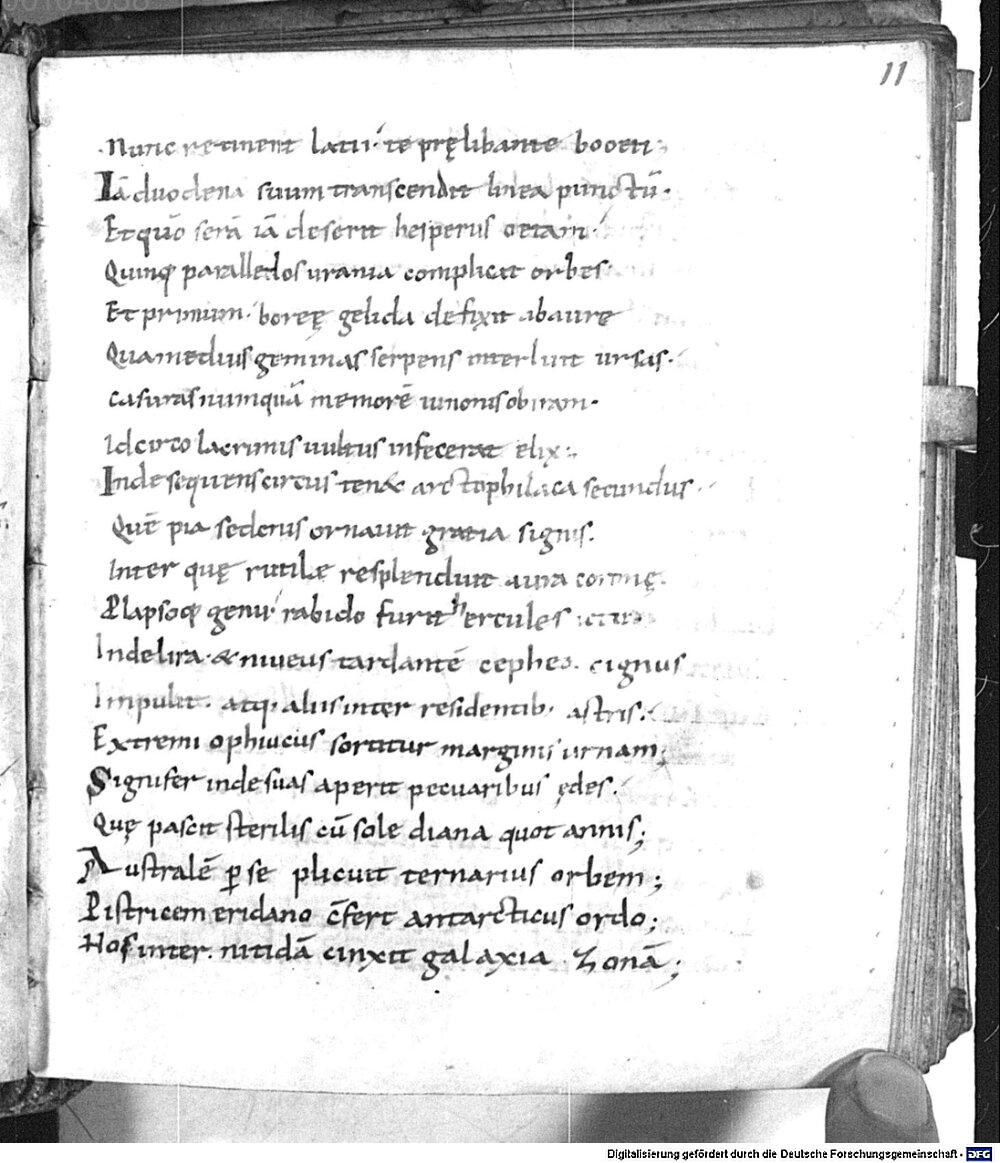 11
Nunc retinent latii te pręlibante booeti;
Iā duodena suum transcendit linea punctū.
Et quō serā iā deserit hesperus oetam.
Quinq; parallelos urania complicit orbes
Et primum. boreę gelida defixit abaure
Qua medius geminas serpens interluit ursas.
casuras numquā memorē iunonis ob iram.
Idcirco lacrimis uultus infecerat elix;
Inde sequens circus ten& arctophilaca secundus.
Quē pia sederus ornauit gratia signis.
Inter quę rutilæ resplenduit aura coronę.
Elapsoq; genu rabido furit hercules
Indelira. & niueus tardantē cepheo. cignus
Impulit. atq; aliis inter residentib; astris.
Extremi ophiucus sortitur marginis urnam;
Signifer inde suas aperit pecuaribus ędes.
Quę pascit sterilis cū sole diana quot annis;
Australē p̱ se plicuit ternarius orbem;
Pistricem eridano c̄fert antarcticus ordo;
Hos inter. nitidā cinxit galaxia zonā;
Digitalisierung gefördert durch die Deutsche Forschungsgemeinschaft - DFG